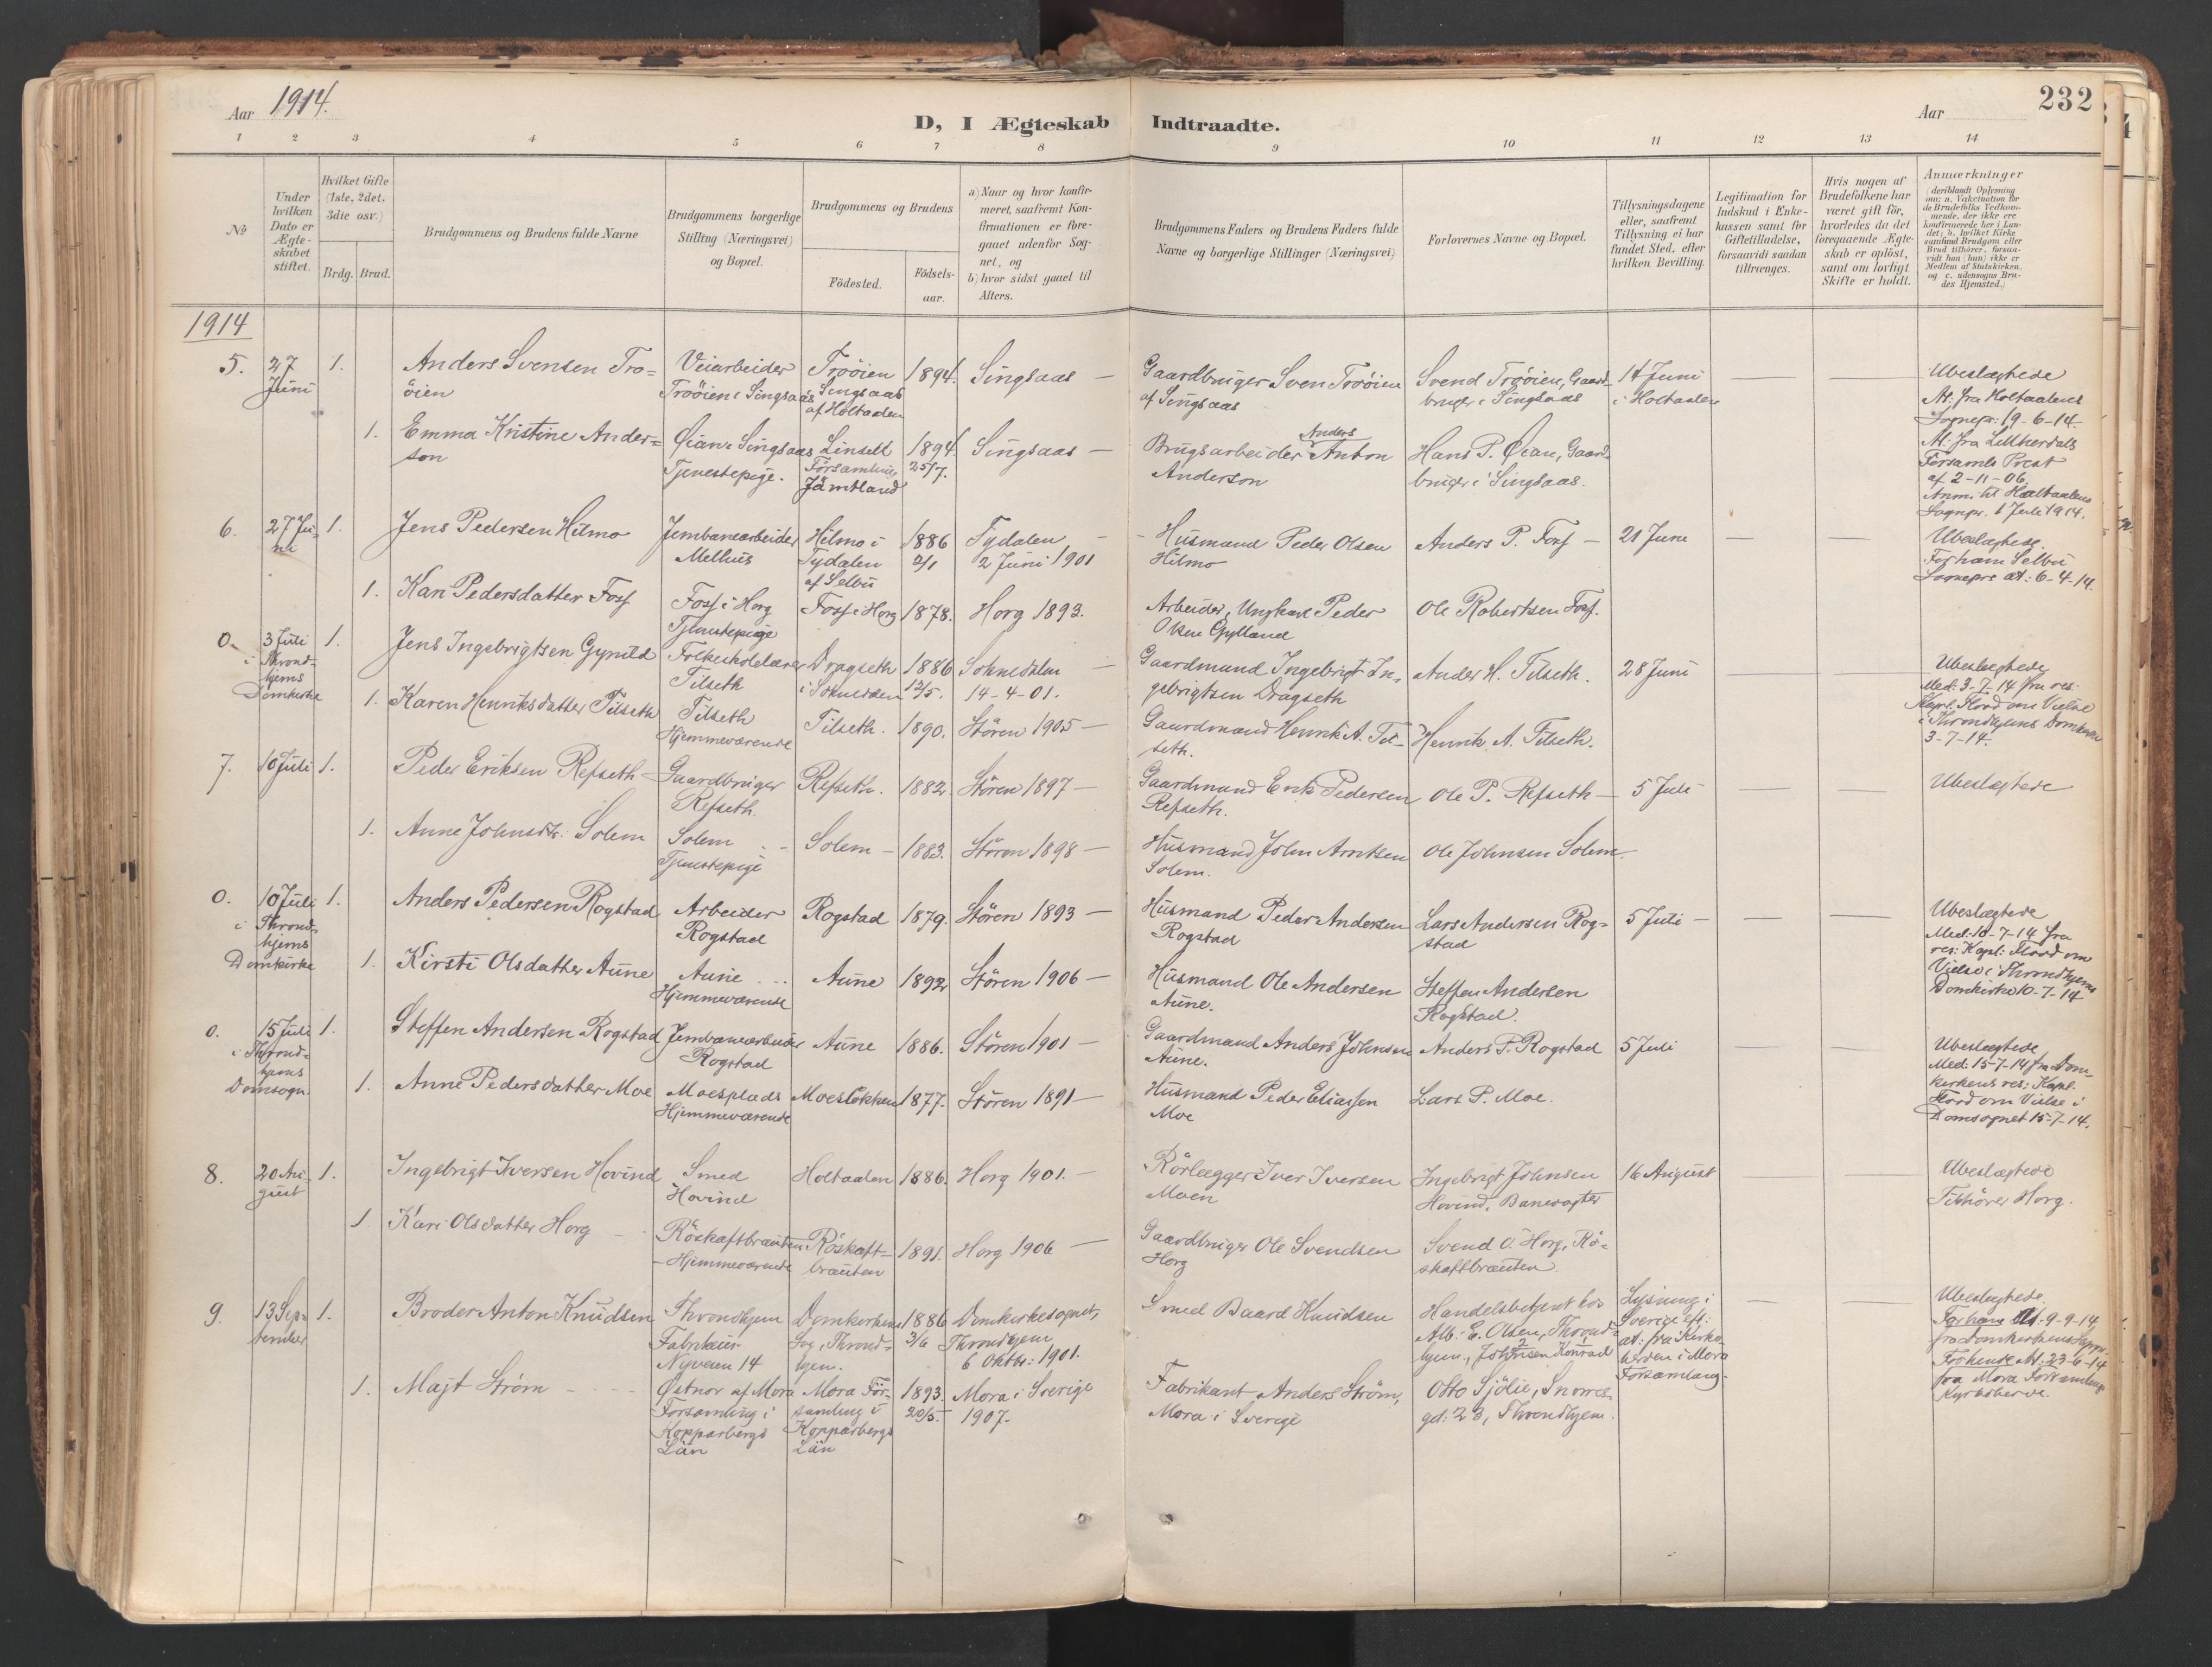 Aar 1914.
D, I Ægteskab Indtraadte.
Aar
232
1 2 3 4 5 6 7 8 9 10 11 12 13 14
No
Under
hvilken
Dato er
Ægte-
skabet
stiftet.
Hvilket Gifte
(1ste, 2det,
3die osv.)
Brdg. Brud.
Brudgommens og Brudens fulde Navne
Brudgommens borgerlige
Stilling (Næringsvei)
og Bopæl.
Brudgommens og Brudens
Födested.
Födsels-
aar.
a) Naar og hvor konfir-
meret, saafremt Kon-
firmationen er fore-
gaaet udenfor Sog-
net, og
b) hvor sidst gaaet til
Alters.
Brudgommens Faders og Brudens Faders fulde
Navne og borgerlige Stillinger (Næringsvei)
Forlovernes Navne og Bopæl.
Tillysningsdagene
eller, saafremt
Tillysning ei har
fundet Sted, efter
hvilken Bevilling.
Legitimation for
Indskud i Enke-
kassen samt for
Giftetilladelse,
forsaavidt saadan
tiltrænges.
Hvis nogen af
Brudefolkene har
været gift för,
hvorledes da det
foregaaende Ægte-
skab er oplöst,
samt om lovligt
Skifte er holdt.
Anmærkninger
(deriblandt Oplysning
om: a. Vakcination for
de Brudefolks Vedkom-
mende, der ikke ere
konfirmerede her i Lan-
det; b. hvilket Kirke
samfund Brudgom eller
Brud tilhörer, forsaa-
vidt han (hun) ikke er
Medlem af Statskirken,
og c. udensogns Bru-
des Hjemsted.)
1914
5. 27
Juni
1.
Anders Svensen Tro=
öien
Veiarbeider
Tröoien i Singsaas
Tröoien
i Singsaas
af Holtaalen
1894.
Singsaas —
Gaardbruger Sven Tröoien
af Singsaas
Svend Tröoien, Gaard-
bruger i Singsaas
14 Juni
i Holtaalen
Ubeslægtede
At. fra Holtaalens
Sognepr. 19-6-14.
At. fra Lillherdals
Forsamls Prest
af 2-11-06.
Anm. til Holtaalens
Sognepr. 1 Juli 1914.
1.
Emma Kristine Ander=
son
Öian i Singsaas
Tjenestepige.
Linsell
Församling
Jämtland
1894.
25/7.
Singsaas —
Brugsarbeider Anders Anton
Anderson
Hans P. Öian, Gaard-
bruger i Singsaas.
6. 27 Ju-
ni
1.
Jens Pedersen Hilmo
Jernbanearbeider
Melhus
Hilmo i
Tydalen
af Selbu
1886
2/1
Tydalen
2 Juni 1901
Husmand Peder Olsen
Hilmo
Anders P. Foss —
21 Juni
Ubeslægtede.
For ham Selbu
Sognepr. at. 6-4-14.
1.
Kari Pedersdatter Foss
Foss i Horg
Tjenestepige
Foss i Horg
1878.
Horg 1893.
Arbeider, Ungkarl Peder
Olsen Gylland
Ole Robertsen Foss.
0. 3 Juli
i Thrond-
hjems
Domkirke
1.
Jens Ingebrigtsen Gynild
Folkeskolelærer
Tilseth
Dragseth
i Soknedalen
1886
12/5.
Soknedalen
14-4-01.
Gaardmand Ingebrigt In-
gebrigtsen Dragseth
Ander H. Tilseth.
28 Juni
Ubeslægtede
Med. 3-7-14 fra res.
Kapl. Flood om Vielse
i Throndhjems Domkirke
3-7-14.
1.
Karen Henriksdatter Tilseth
Tilseth
Hjemmeværende
Tilseth.
1890.
Stören 1905 —
Gaardmand Henrik A. Til-
seth.
Henrik A. Tilseth.
7. 10 Juli 1.
Peder Eriksen Refseth
Gaardbruger
Refseth.
Refseth.
1882.
Stören 1897 —
Gaardmand Erik Pedersen
Refseth.
Ole P. Refseth —
5 Juli
Ubeslægtede
1.
Anne Johnsdtr. Solem
Solem
Tjenestepige
Solem —
1883.
Stören 1898 —
Husmand John Arntsen
Solem.
Ole Johnsen Solem.
0. 10 Juli
i Thrond-
hjems
Domkirke
1.
Anders Pedersen Rogstad
Arbeider
Rogstad
Rogstad
1879.
Stören 1893 —
Husmand Peder Andersen
Rogstad
Lars Andersen Rog-
stad
5 Juli —
Ubeslægtede
Med. 10-7-14 fra
res. Kapl. Flood om
Vielse i Throndhjems
Domkirke 10-7-14
1.
Kirsti Olsdatter Aune
Aune
Hjemmeværende
Aune
1892.
Stören 1906 —
Husmand Ole Andersen
Aune.
Steffen Andersen
Rogstad.
0. 15 Juli
i Thrond-
hjems
Domsogn.
1.
Steffen Andersen Rogstad
Jernbanearbeider
Rogstad
Aune
1886.
Stören 1901 —
Gaardmand Anders Johnsen
Aune.
Anders P. Rogstad
5 Juli
Ubeslægtede
Med. 15-7-14 fra Dom-
kirkens res. Kapl.
Flood om Vielse i
Domsognet 15-7-14.
1.
Anne Pedersdatter Moe
Moesplads
Hjemmeværende
Moeslökken
1877.
Stören 1891 —
Husmand Peder Eliassen
Moe
Lars P. Moe.
8. 20 Au-
gust
1.
Ingebrigt Iversen Hovind
Smed
Hovind
Holtaalen
1886.
Horg 1901.—
Rörlægger Iver Iversen
Moen
Ingebrigt Johnsen
Hovind, Banevogter
16 August
Ubeslægtede
Tilhörer Horg.
1.
Kari Olsdatter Horg
Röskaftbrauten
Hjemmeværende
Röskaft-
brauten
1891.
Horg 1906 —
Gaardbruger Ole Svendsen
Horg
Svend O. Horg, Rö-
skaftbrauten.
9. 13 Sep-
tember
1.
Broder Anton Knudsen
Throndhjem
Fabrikeier
Nyveien 14
Domkirkens
Sog., Thrond-
hjem.
1886
3/6
Domkirkesognet,
Throndhjem
6 Oktbr. 1901.
Smed Baard Knudsen
Handelsbetjent hos
Alb. E. Olsen, Thrond-
hjem, Johansen Konrad
Lysning i
Sverige eft.
at. fra Kirke-
herden i Mora
Forsamlang.
Ubeslægtede.
For ham At. 9-9-14
fra Domkirkens Sogpr.
For hende At. 23-6-14
fra Mora Forsamlings
Kyrkoherde.
1.
Majt Ström
Östnor af Mora
Forsamling i
Kopparbergs
Län
Mora För-
samling i
Kopparbergs
Län
1893.
20/5.
Mora i Sverige
1907.
Fabrikant Anders Ström,
Mora i Sverige
Otto Sjölie, Snorres-
gd. 23, Throndhjem.